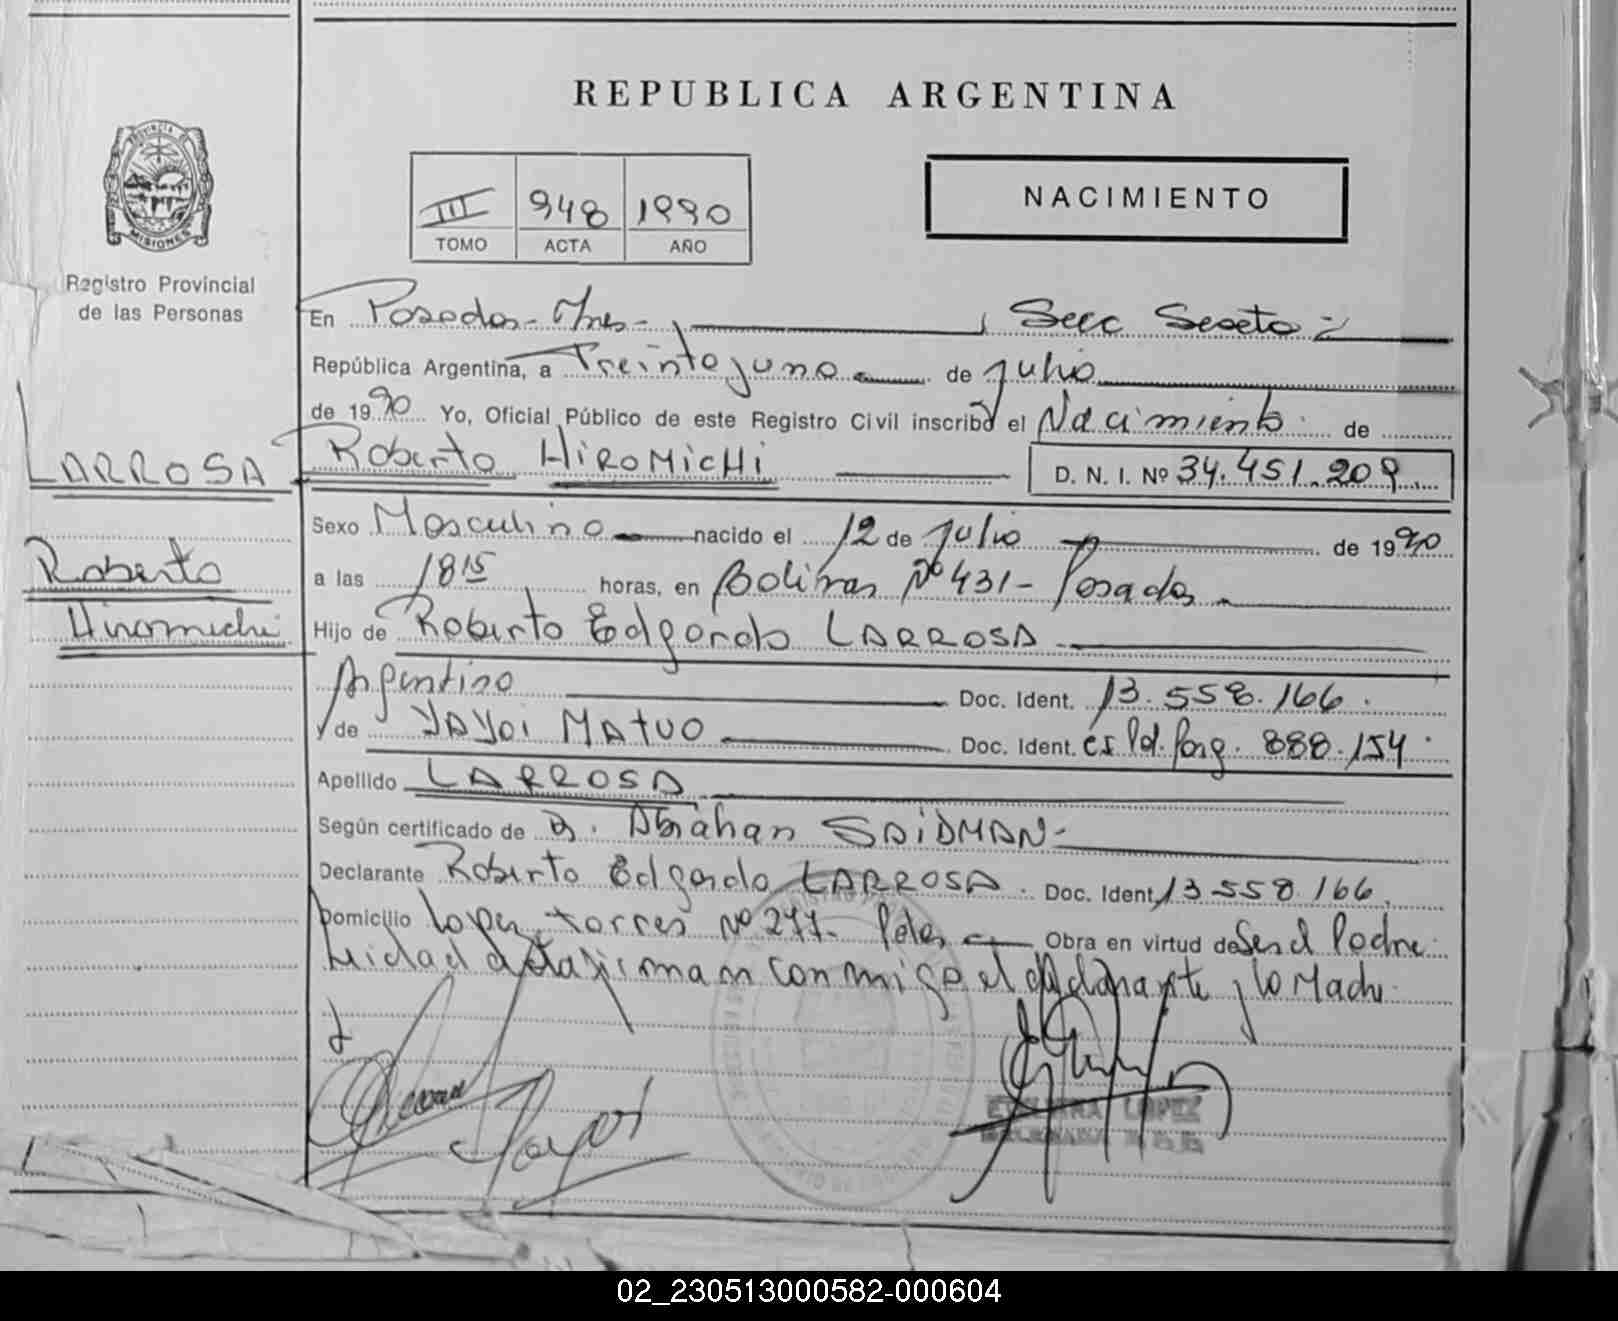 REPUBLICA ARGENTINA
PROVINCIA DE
MISIONES
Registro Provincial
de las Personas
III 948 1990
TOMO ACTA AÑO
NACIMIENTO
En Posadas - Mnes - Secc Sexta
República Argentina, a Treintayuno de Julio
de 1990 Yo, Oficial Público de este Registro Civil inscribo el Nacimiento de
Roberto HIROMICHI D. N. I. Nº 34.451.209
LARROSA
Roberto
Hiromichi
Sexo Masculino nacido el 12 de Julio de 1990
a las 1815 horas, en Bolivar Nº 431 - Posadas
Hijo de Roberto Edgardo LARROSA
Argentino Doc. Ident. 13.558.166.
y de YAYOI MATUO Doc. Ident. C.I. Pol. Parag. 888.154
Apellido LARROSA
Según certificado de Dr. Abrahan SAIDMAN -
Declarante Roberto Edgardo LARROSA. Doc. Ident. 13.558.166.
Domicilio Lopez torres Nº 277 - Pdas Obra en virtud de Ser el Padre
firman conmigo el declarante y la Madre
LOPEZ
02_230513000582-000604